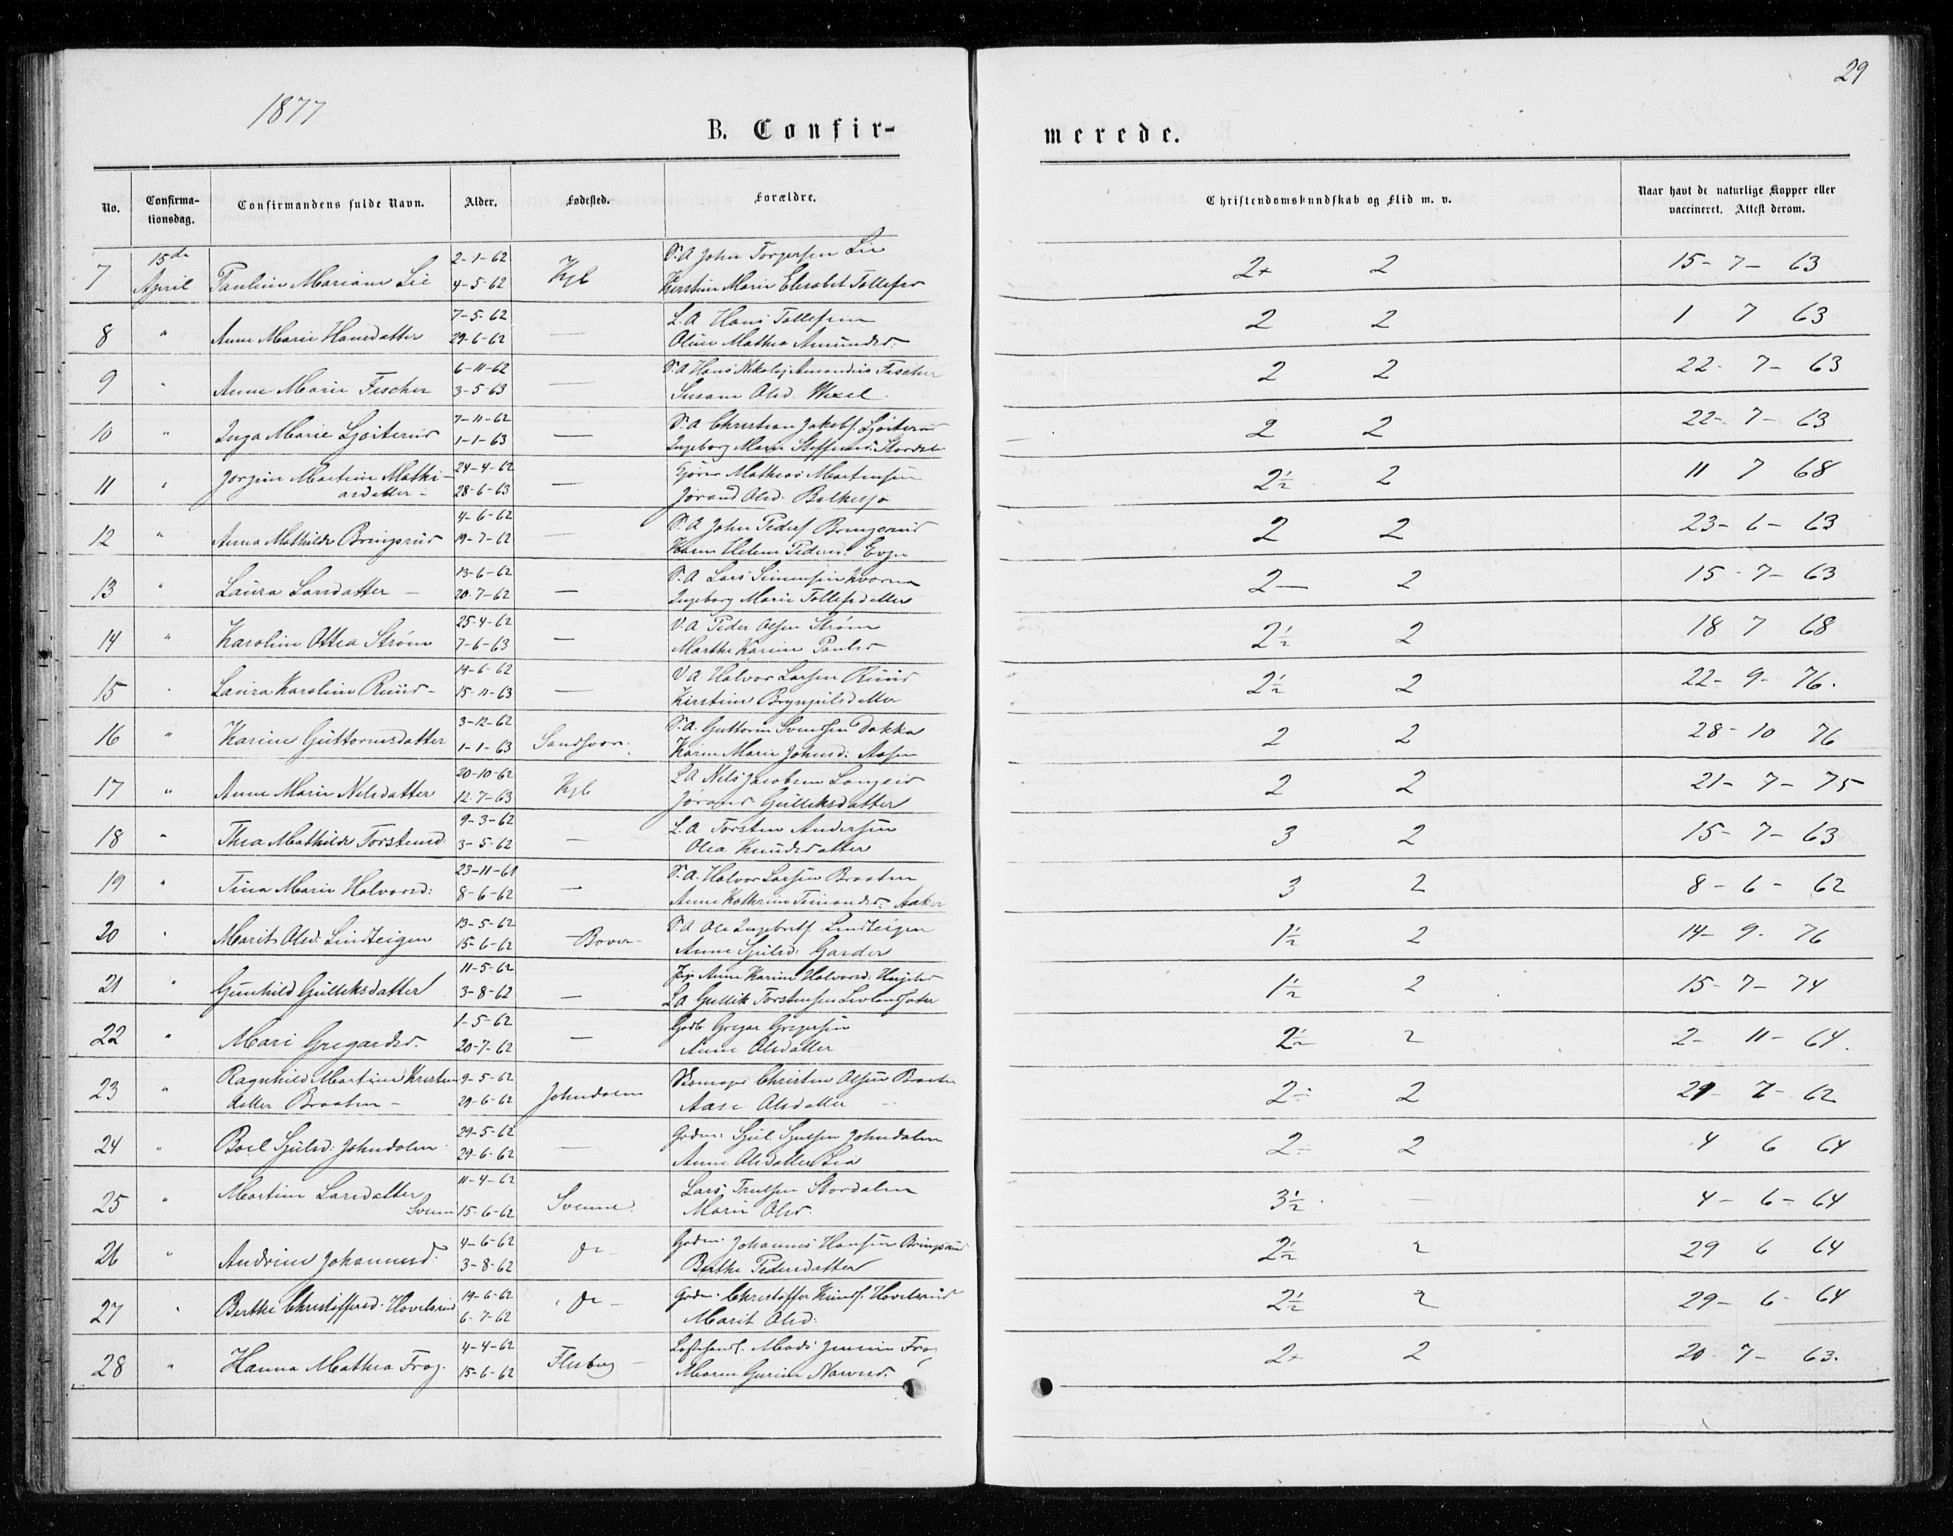 29
1877
B. Confir-
merede.
No. Confirma-tionsdag. Confirmandens fulde Navn. Alder. Fødested. Forældre. Christendomskundskab og Flid m. v. Naar havt de naturlige Kopper eller vaccineret. Attest derom.
7 15de April Pauline Mariane Lie 2-1-62 4-5-62 Kgb S.A John Torgersen Lie Kirstine Marie Elisabet Tollefsd 2+ 2 15-7-63
8 " Anne Marie Hansdatter 7-5-62 29-6-62 — L.A Hans Tollefsen Oline Mathea Amundsd. 2 2 1 7 63
9 " Anne Marie Fischer 6-11-62 3-5-63 — S.A Hans Nikolaj Fischer Susane Olsd. Wexel. 2 2 22-7-63
10 " Inga Marie 7-11-62 1-1-63 — S.A Christian Jakobs. Ingeborg Marie 2 2 22-7-63
11 " Jorgine Martine Mathiasdatter- 24-4-62 28-6-63 — Mathias Martinsen Jørand Olsd. Bolkesjø 2½ 2 11 7 68
12 " Anna Mathilde Bringsrud 4-6-62 19-7-62 — S.A John Peders. Bringsrud Karen Helene Pedersd. Evju 2 2 23-6-63
13 " Laura Larsdatter — 13-6-62 20-7-62 — S.A Lars Simensen Kværna Ingeborg Marie Tollefsdatter 2— 2 15-7-63
14 " Karoline Ottea Strøm 25-4-62 7-6-63 — V.A Peder Olsen Strøm Marthe Karine Paulsd 2½ 2 18 7 68
15 " Laura Karoline Ruud- 14-6-62 15-11-63 — V A Halvor Larsen Ruud Kirstine Brynjulsdatter 2½ 2 22-9-76.
16 " Karine Guttormsdatter 3-12-62 1-1-63 Sandsvær: S.A. Guttorm Svendsen Dokka Karen Marie Johnsd: Aasen 2 2 28-10 76
17 " Anne Marie Nilsdatter 20-10-62 12-7-63 Kgb L A Nils Jacobsen Jørand Gulliksdatter 2 2 21-7-75
18 " Thea Mathilde Torstensd: 9-3-62 3-5-62 — L.A Torsten Andersen Olea Knudsdatter 3 2 15-7-63
19 " Tina Marie Halvorsd: 23-11-61 8-6-62 — S.A. Halvor Larsen Braaten Anne Kathrine Simonsd. Aaker 3 2 8-6-62
20 " Marit Olsd. Lindteigen 13-5-62 15-6-62 — S.A Ole Ingebrets. Lindteigen Anne Gjulsd: Garder 1½ 2 14-9-76
21 " Gunhild Gulliksdatter 11-5-62 3-8-62 — Anne Karine Halvorsd: LA Gullik Torstensen 1½ 2 15-7-74
22 " Mari Gregardsd. 1-5-62 20-7-62 — Gregar Gregersen Anne Olsdatter 2½ 2 2-11-64.
23 " Ragnhild Martine Kristensdatter Braaten- 9-5-62 29-6-62 Johndalen Christen Olsen Braaten Aase Olsdatter 2÷ 2 29-7-62
24 " Boel Gjulsd: Johndalen 29-5-62 29-6-62 — Gjul Gjulsen Johndalen Anne Olsdatter Lia 2÷ 2 4 6 64
25 " Martine Larsdatter Svene 11-4-62 15-6-62 Svenne. Lars Trulsen Stordalen Marie Olsd. 3½. — 4-6-64
26 " Andrine Johannesd. 4-6-62 3-8-62 do- Johannes Hansen Bringsrud Berthe Pedersdatter 2½ 2 29 6 64
27 " Berthe Christoffersd. Hovelsrud 19-6-62 6-7-62 do- Christoffer Knuds. Hovelsrud Marit Olsd. 2½ 2 29-6-64
28 " Hanna Mathea Frog. 4-4-62 15-6-62 Flesberg — Mads Jensen Frog Maren Gurine 2+ 2 20-7-63.